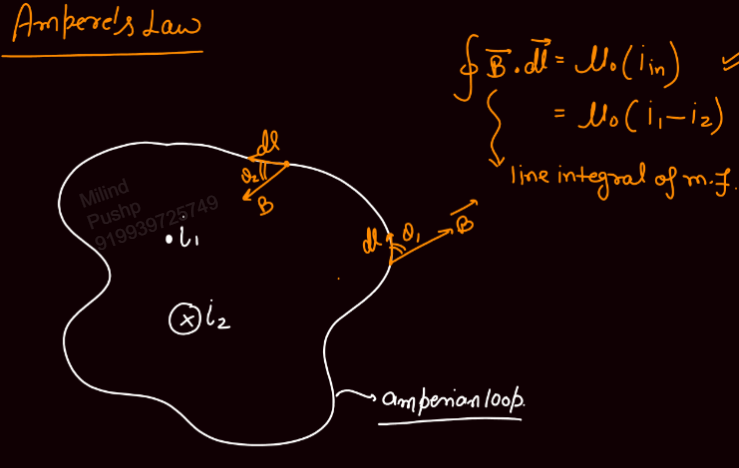 Ampere's Law
∮ B⃗.dl⃗ = μ₀(i_in)
= μ₀(i₁-i₂)
line integral of m.f.
dl
θ₂
B
Milind
Pushp
919939725749
.i₁
dl θ₁ B⃗
ⓧ i₂
amperian loop.